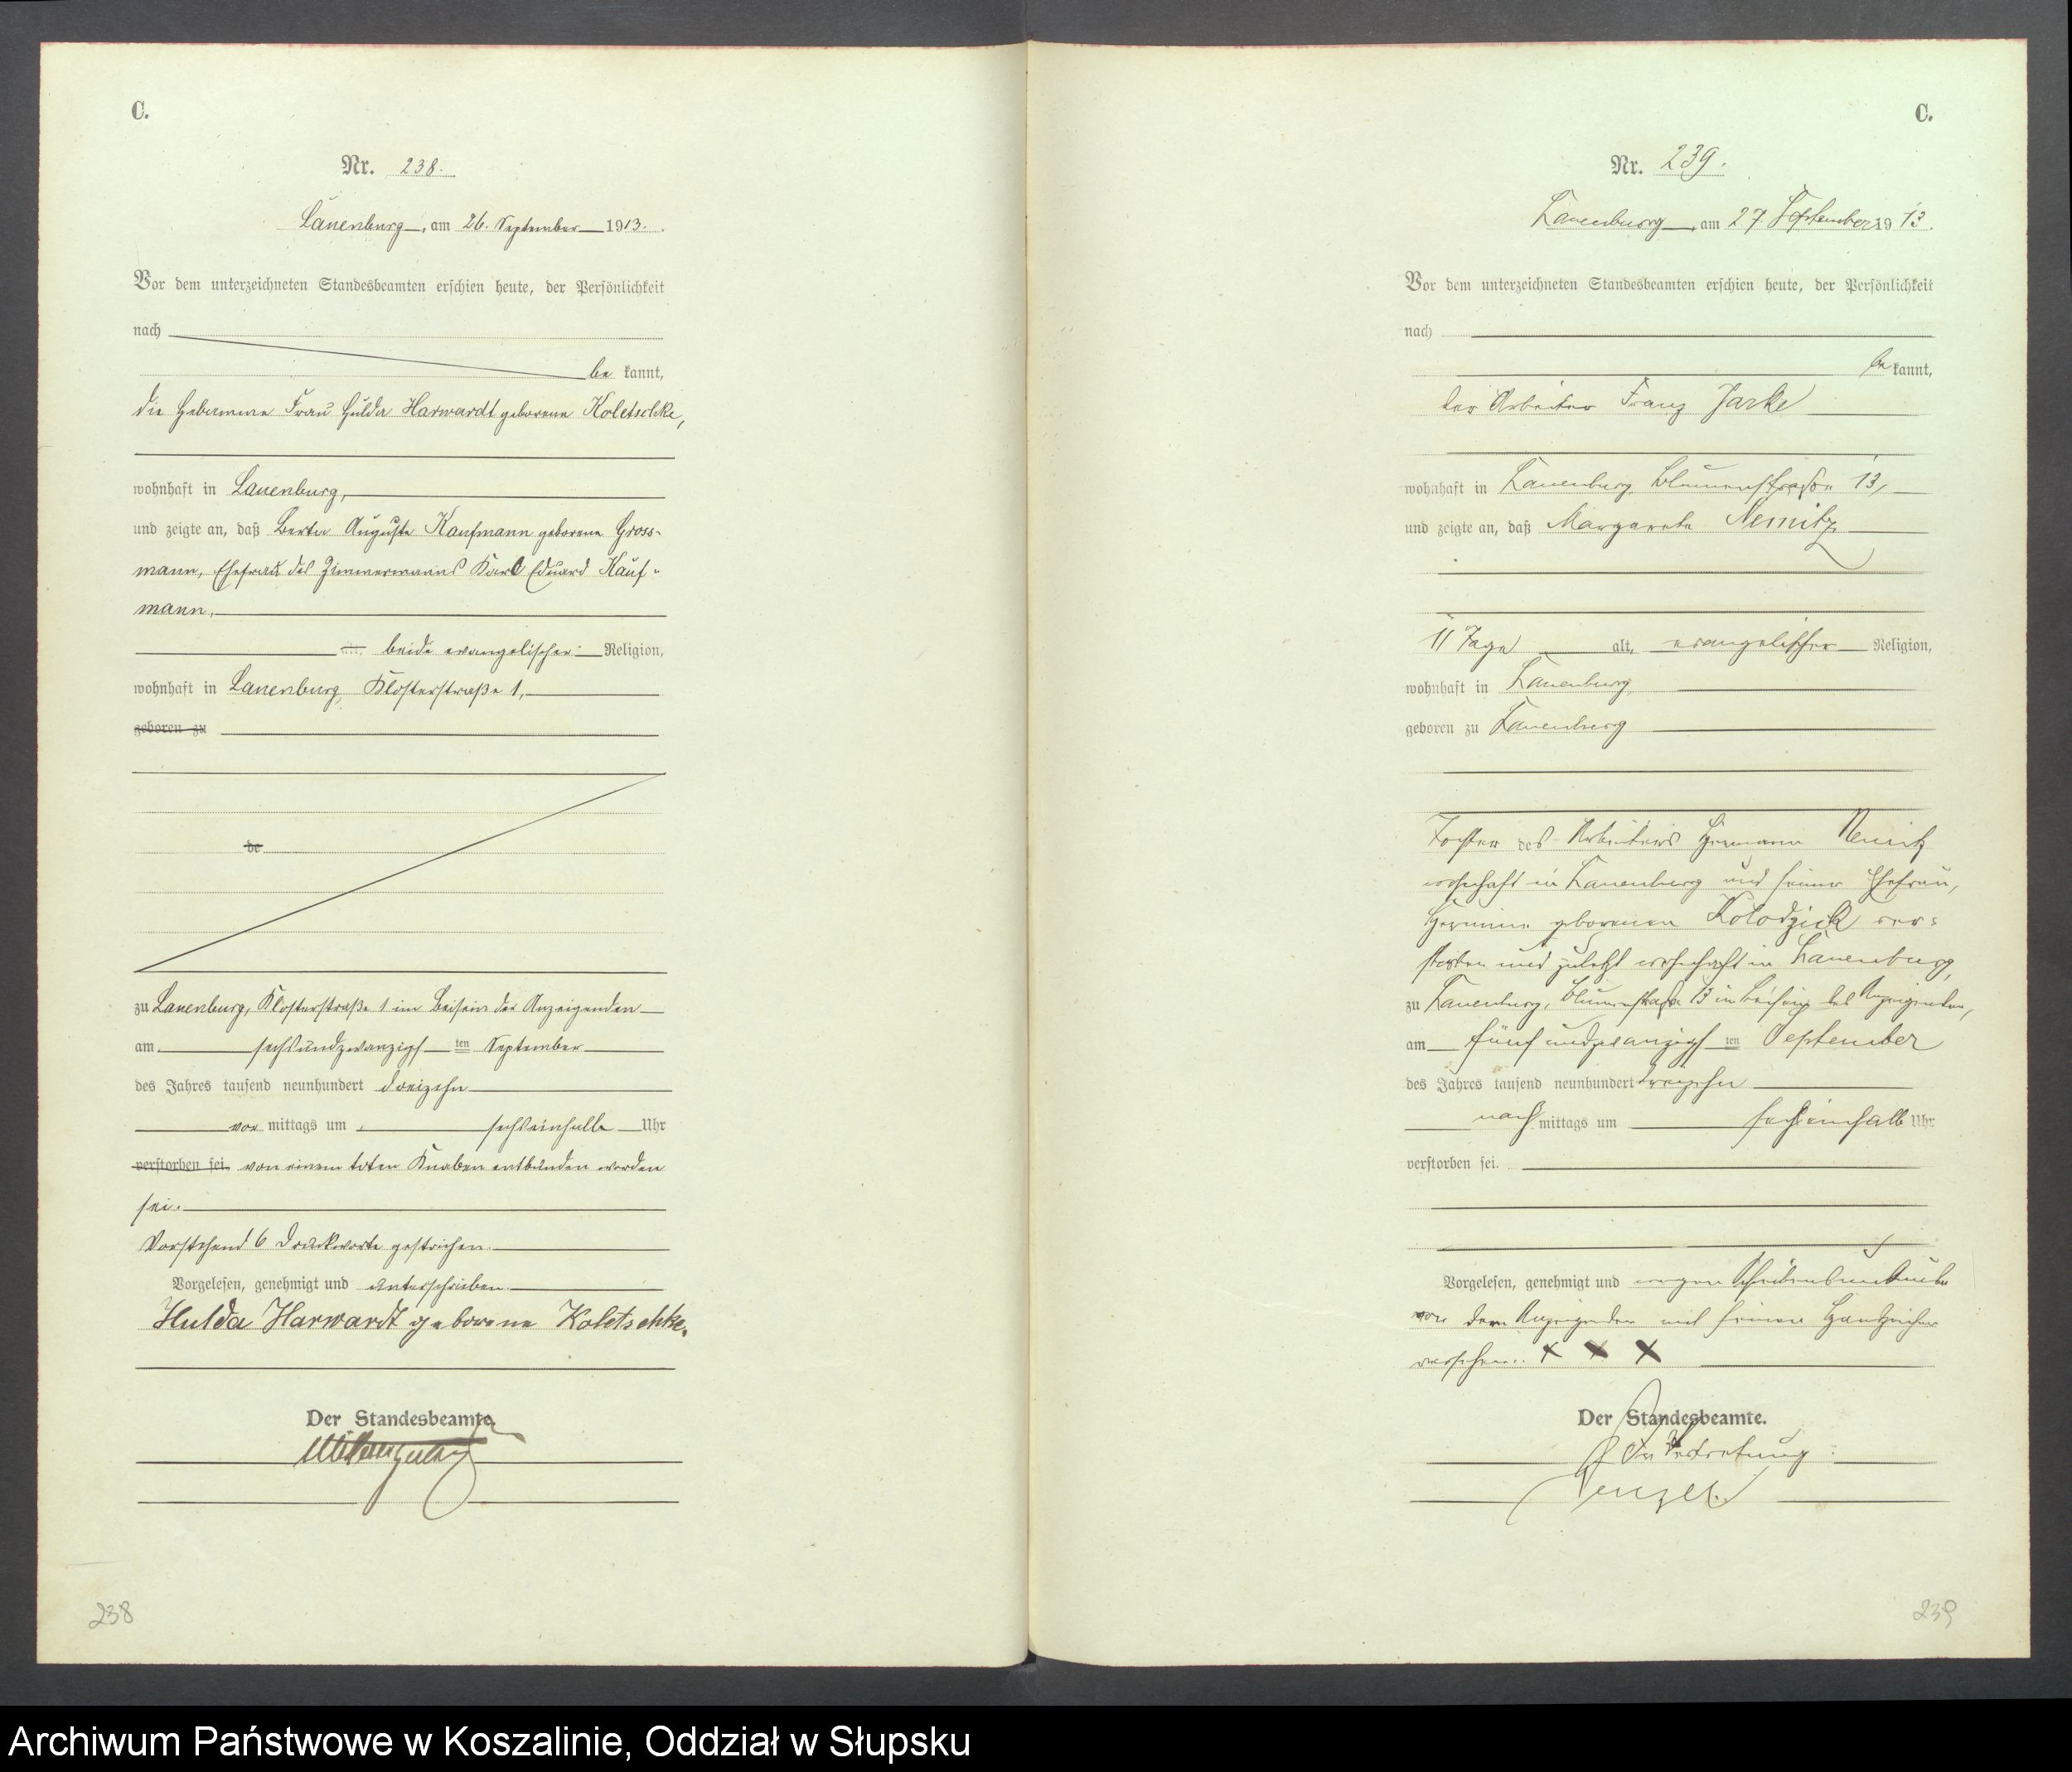 C.
Nr. 238.
Lauenburg, am 26. September 1913.
Vor dem unterzeichneten Standesbeamten erschien heute, der Persönlichkeit
nach
be kannt,
die Hebamme Frau Hulda Harwardt geborene Koletschke,
wohnhaft in Lauenburg,
und zeigte an, daß Berta Auguste Kaufmann geborene Gross-
mann, Ehefrau des Zimmermanns Karl Eduard Kauf-
mann,
beide evangelischer Religion,
wohnhaft in Lauenburg, Klosterstraße 1,
geboren zu
de
zu Lauenburg, Klosterstraße 1 im Beisein der Anzeigenden
am sechsundzwanzigsten September
des Jahres tausend neunhundert dreizehn
vor mittags um sechseinhalb Uhr
verstorben sei von einem toten Knaben entbunden worden
sei.
Vorstehend 6 Druckworte gestrichen.
Vorgelesen, genehmigt und unterschrieben.
Hulda Harwardt geborene Koletschke.
Der Standesbeamte.
238
C.
Nr. 239.
Lauenburg, am 27 September 1913.
Vor dem unterzeichneten Standesbeamten erschien heute, der Persönlichkeit
nach
be kannt,
der Arbeiter Franz Jarke
wohnhaft in Lauenburg, Blumenstraße 13,
und zeigte an, daß Margarete Nemitz
11 Tage alt, evangelischer Religion,
wohnhaft in Lauenburg,
geboren zu Lauenburg
Tochter des Arbeiters Hermann Nemitz
wohnhaft in Lauenburg und seiner Ehefrau,
Hermine geborenen Kolodzick ver-
storben und zuletzt wohnhaft in Lauenburg,
zu Lauenburg, Blumenstraße 13 im Beisein des Anzeigenden,
am fünfundzwanzigsten September
des Jahres tausend neunhundert dreizehn
nach mittags um sechseinhalb Uhr
verstorben sei.
Vorgelesen, genehmigt und wegen Schreibensunkunde
von dem Anzeigenden mit seinem Handzeichen
versehen. x x x
Der Standesbeamte.
In Vertretung:
239
Archiwum Państwowe w Koszalinie, Oddział w Słupsku